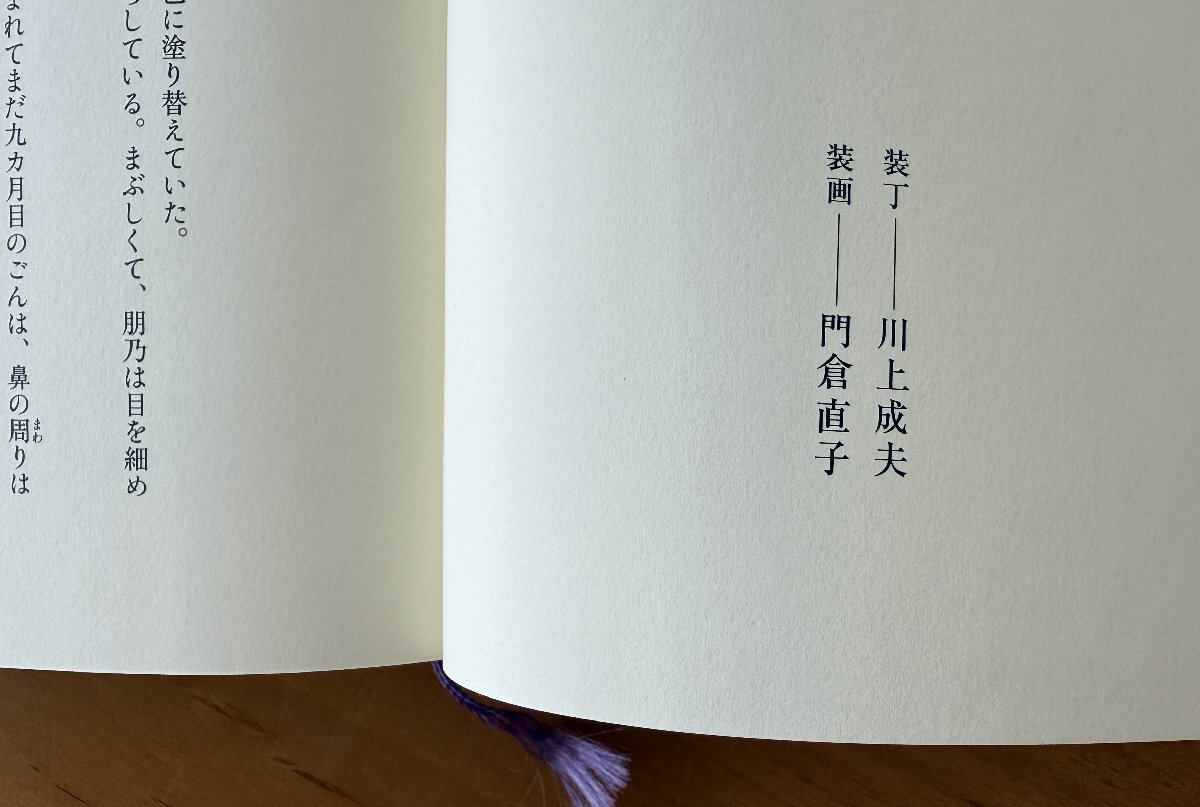 装丁――川上成夫
装画――門倉直子
に塗り替えていた。
している。まぶしくて、朋乃は目を細め
れてまだ九カ月目のごんは、鼻の周りは
まわ